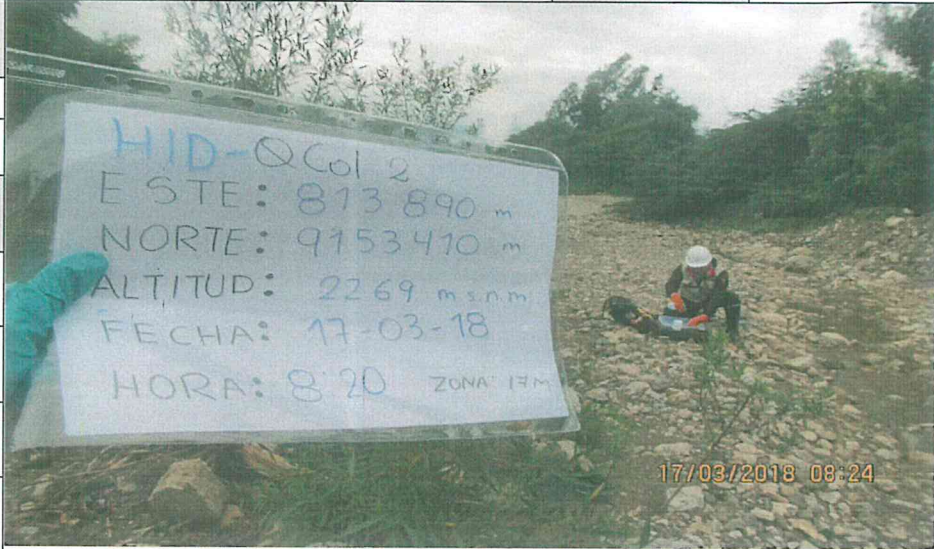 HID-QCol 2
ESTE: 813 890 m
NORTE: 9153 410 m
ALTITUD: 2269 m s.n.m.
FECHA: 17-03-18
HORA: 8:20 ZONA: 17M
17/03/2018 08:24